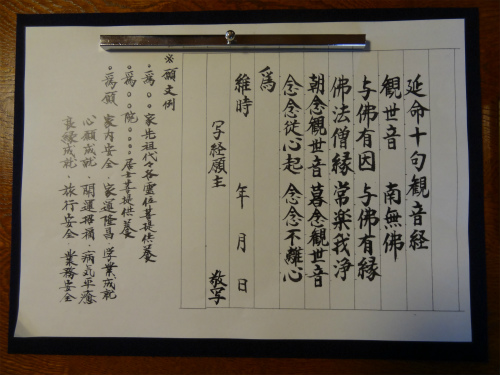 延命十句観音経
観世音 南無佛
与佛有因 与佛有縁
佛法僧縁 常楽我浄
朝念観世音 暮念観世音
念念從心起 念念不離心
為
維時 年 月 日
写経願主 敬写
※願文例
・為○○家先祖代々各霊位菩提供養
・為○○院……居士菩提供養
・為願 家内安全・家運隆昌・学業成就
心願成就・開運招福・病気平癒
良縁成就・旅行安全・業務安全